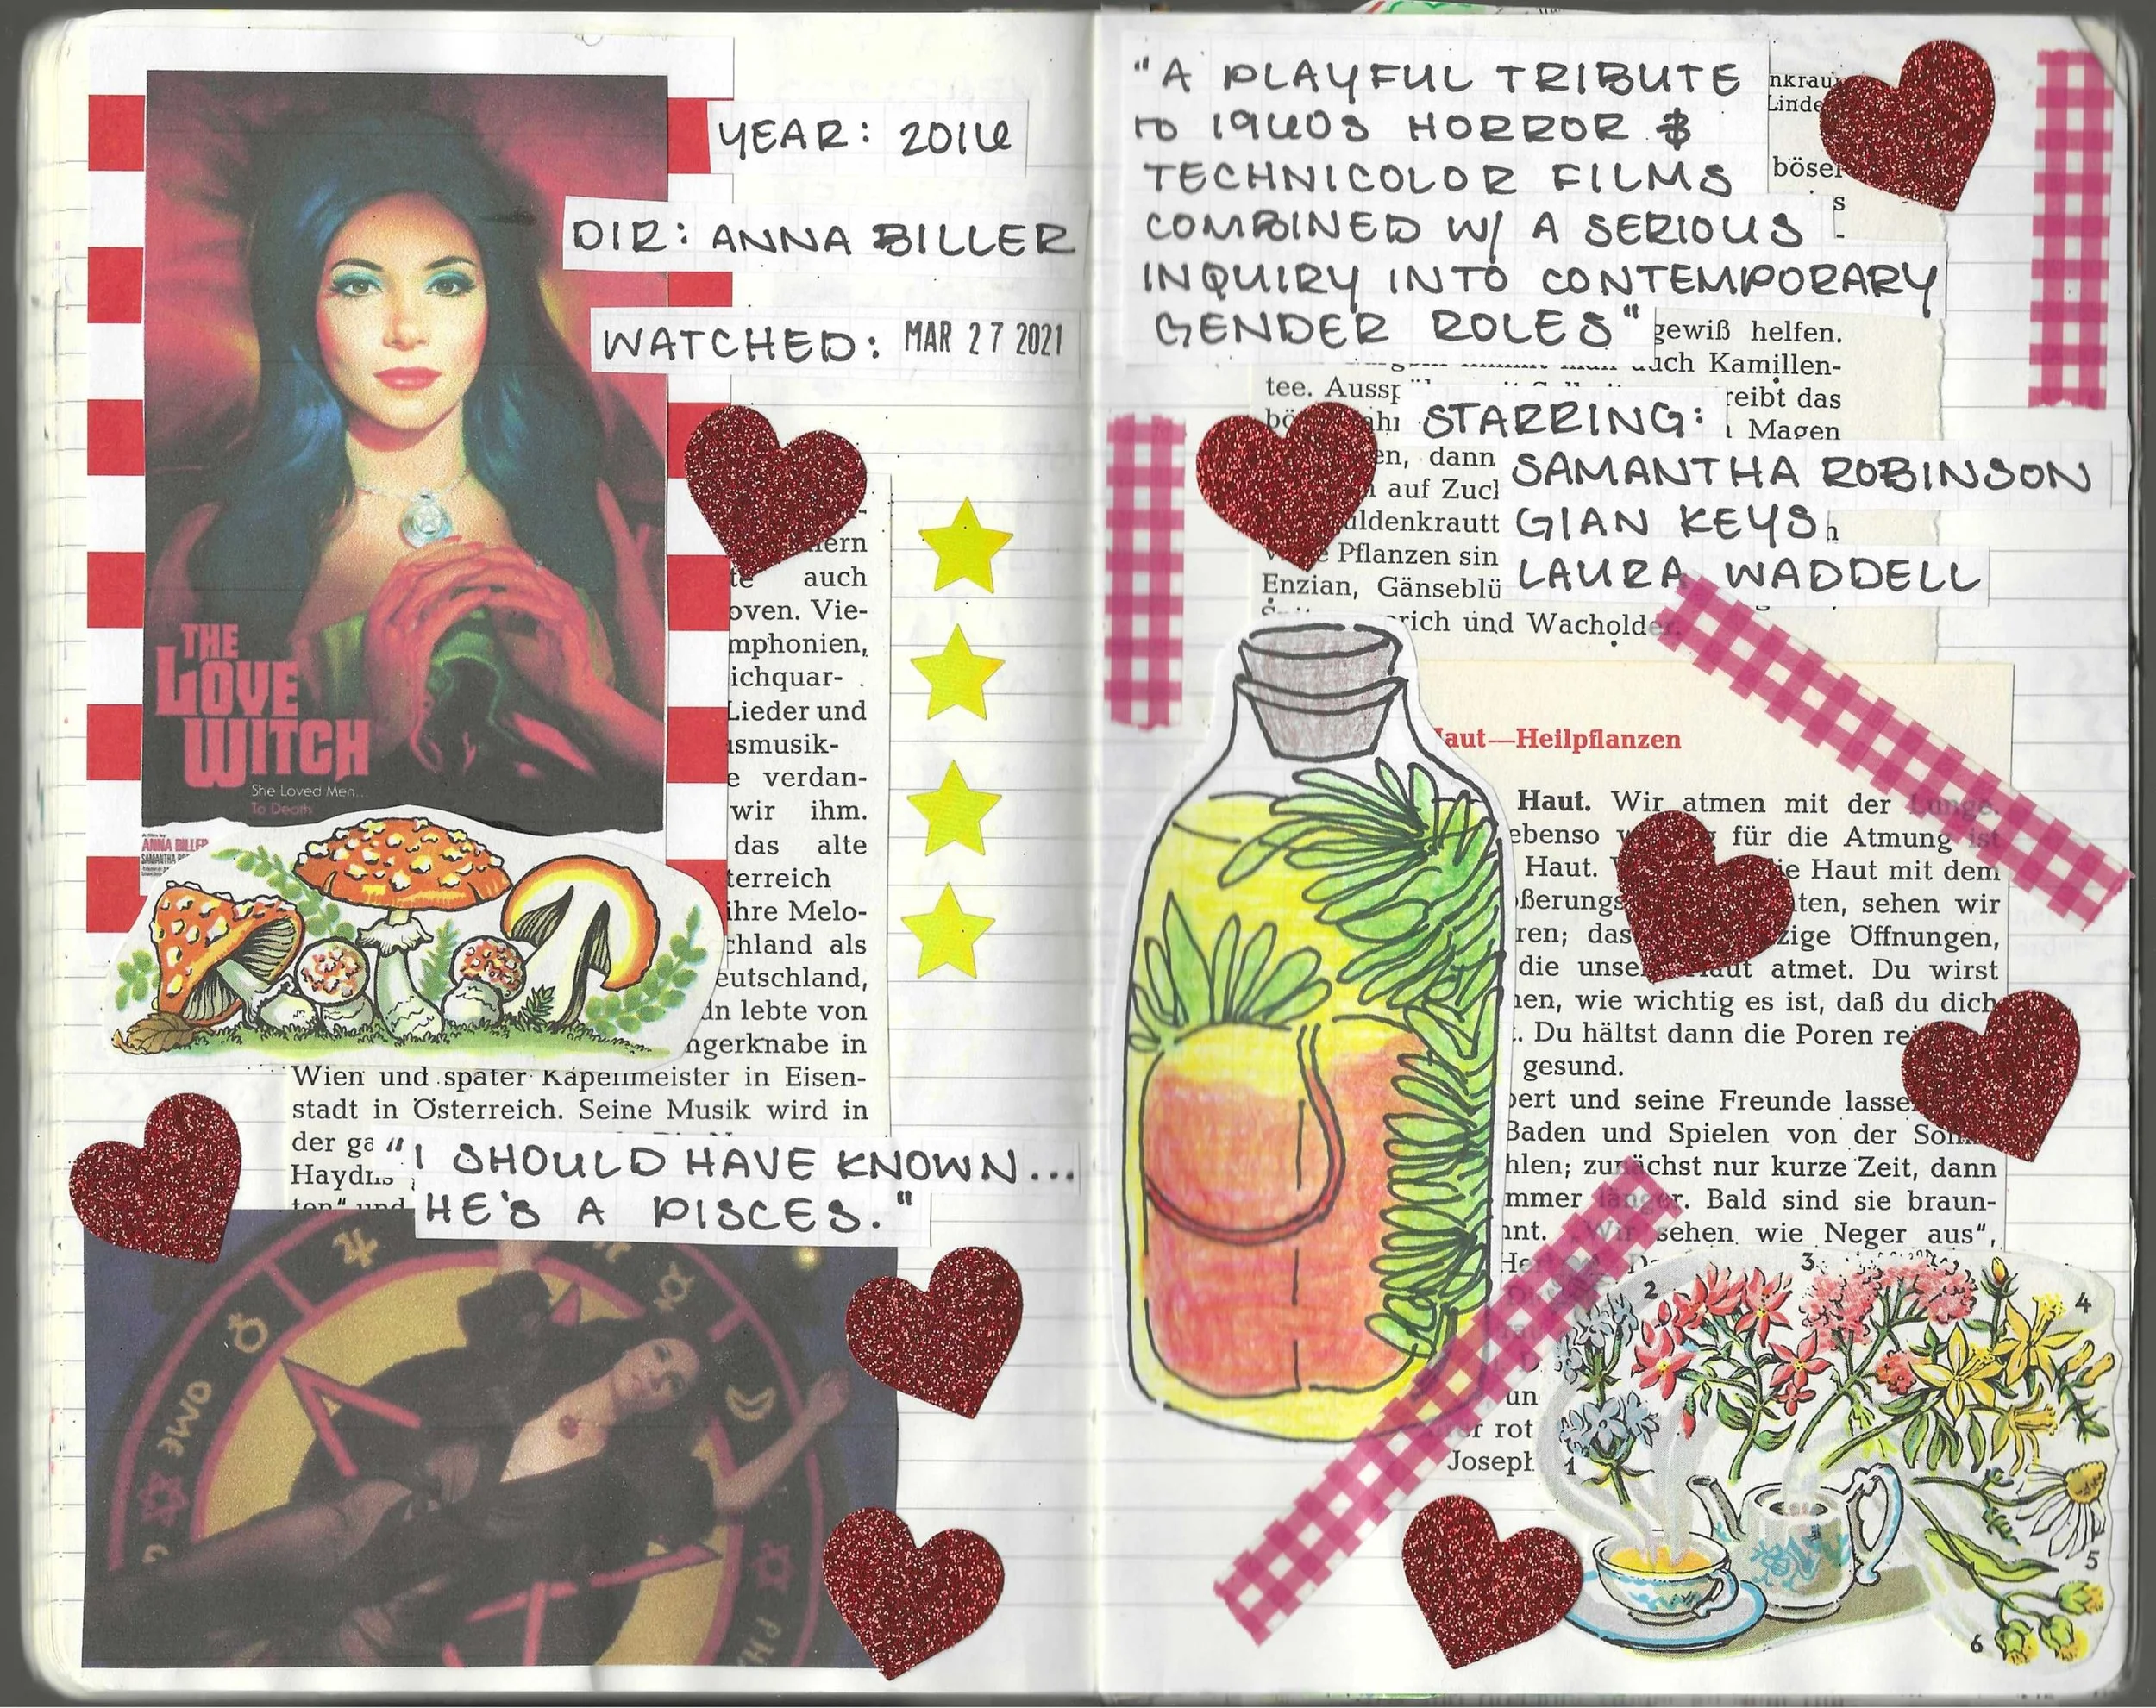 YEAR: 2016
DIR: ANNA BILLER
WATCHED: MAR 27 2021
THE
LOVE
WITCH
She Loved Men...
To Death
ANNA BILLER
auch
oven. Vie-
mphonien,
ichquar-
Lieder und
smusik-
e verdan-
wir ihm.
das alte
terreich
ihre Melo-
chland als
eutschland,
lebte von
ngerknabe in
Wien und später Kapellmeister in Eisen-
stadt in Österreich. Seine Musik wird in
der
"I SHOULD HAVE KNOWN...
HE'S A PISCES."
"A PLAYFUL TRIBUTE
TO 1960S HORROR &
TECHNICOLOR FILMS
COMBINED W/ A SERIOUS
INQUIRY INTO CONTEMPORARY
GENDER ROLES"
nkrau
Linde
böser
s
gewiß helfen.
Kamillen-
tee.
reibt das
Magen
STARRING:
en, dann
SAMANTHA ROBINSON
auf
GIAN KEYS
LAURA WADDELL
Pflanzen sin
Enzian, Gänseblü
rich und Wacholder.
aut—Heilpflanzen
Haut. Wir atmen mit der Lunge.
ebenso für die Atmung ist
Haut. die Haut mit dem
ßerungs ten, sehen wir
ren; das zige Öffnungen,
die unse Haut atmet. Du wirst
en, wie wichtig es ist, daß du dich
. Du hältst dann die Poren re
gesund.
bert und seine Freunde lasse
Baden und Spielen von der Son
hlen; zunächst nur kurze Zeit, dann
mmer länger. Bald sind sie braun-
nnt. „Wir sehen wie Neger aus“,
un
rot
Joseph
1
2
3
4
5
6